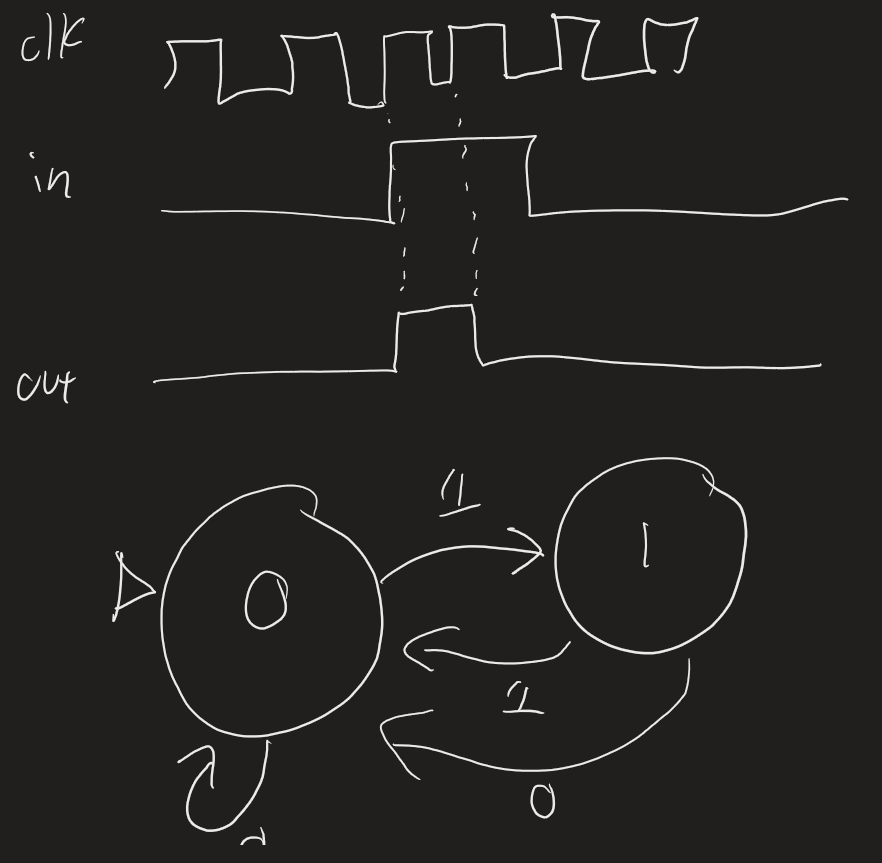 clk
in
out
1
0
1
1
0